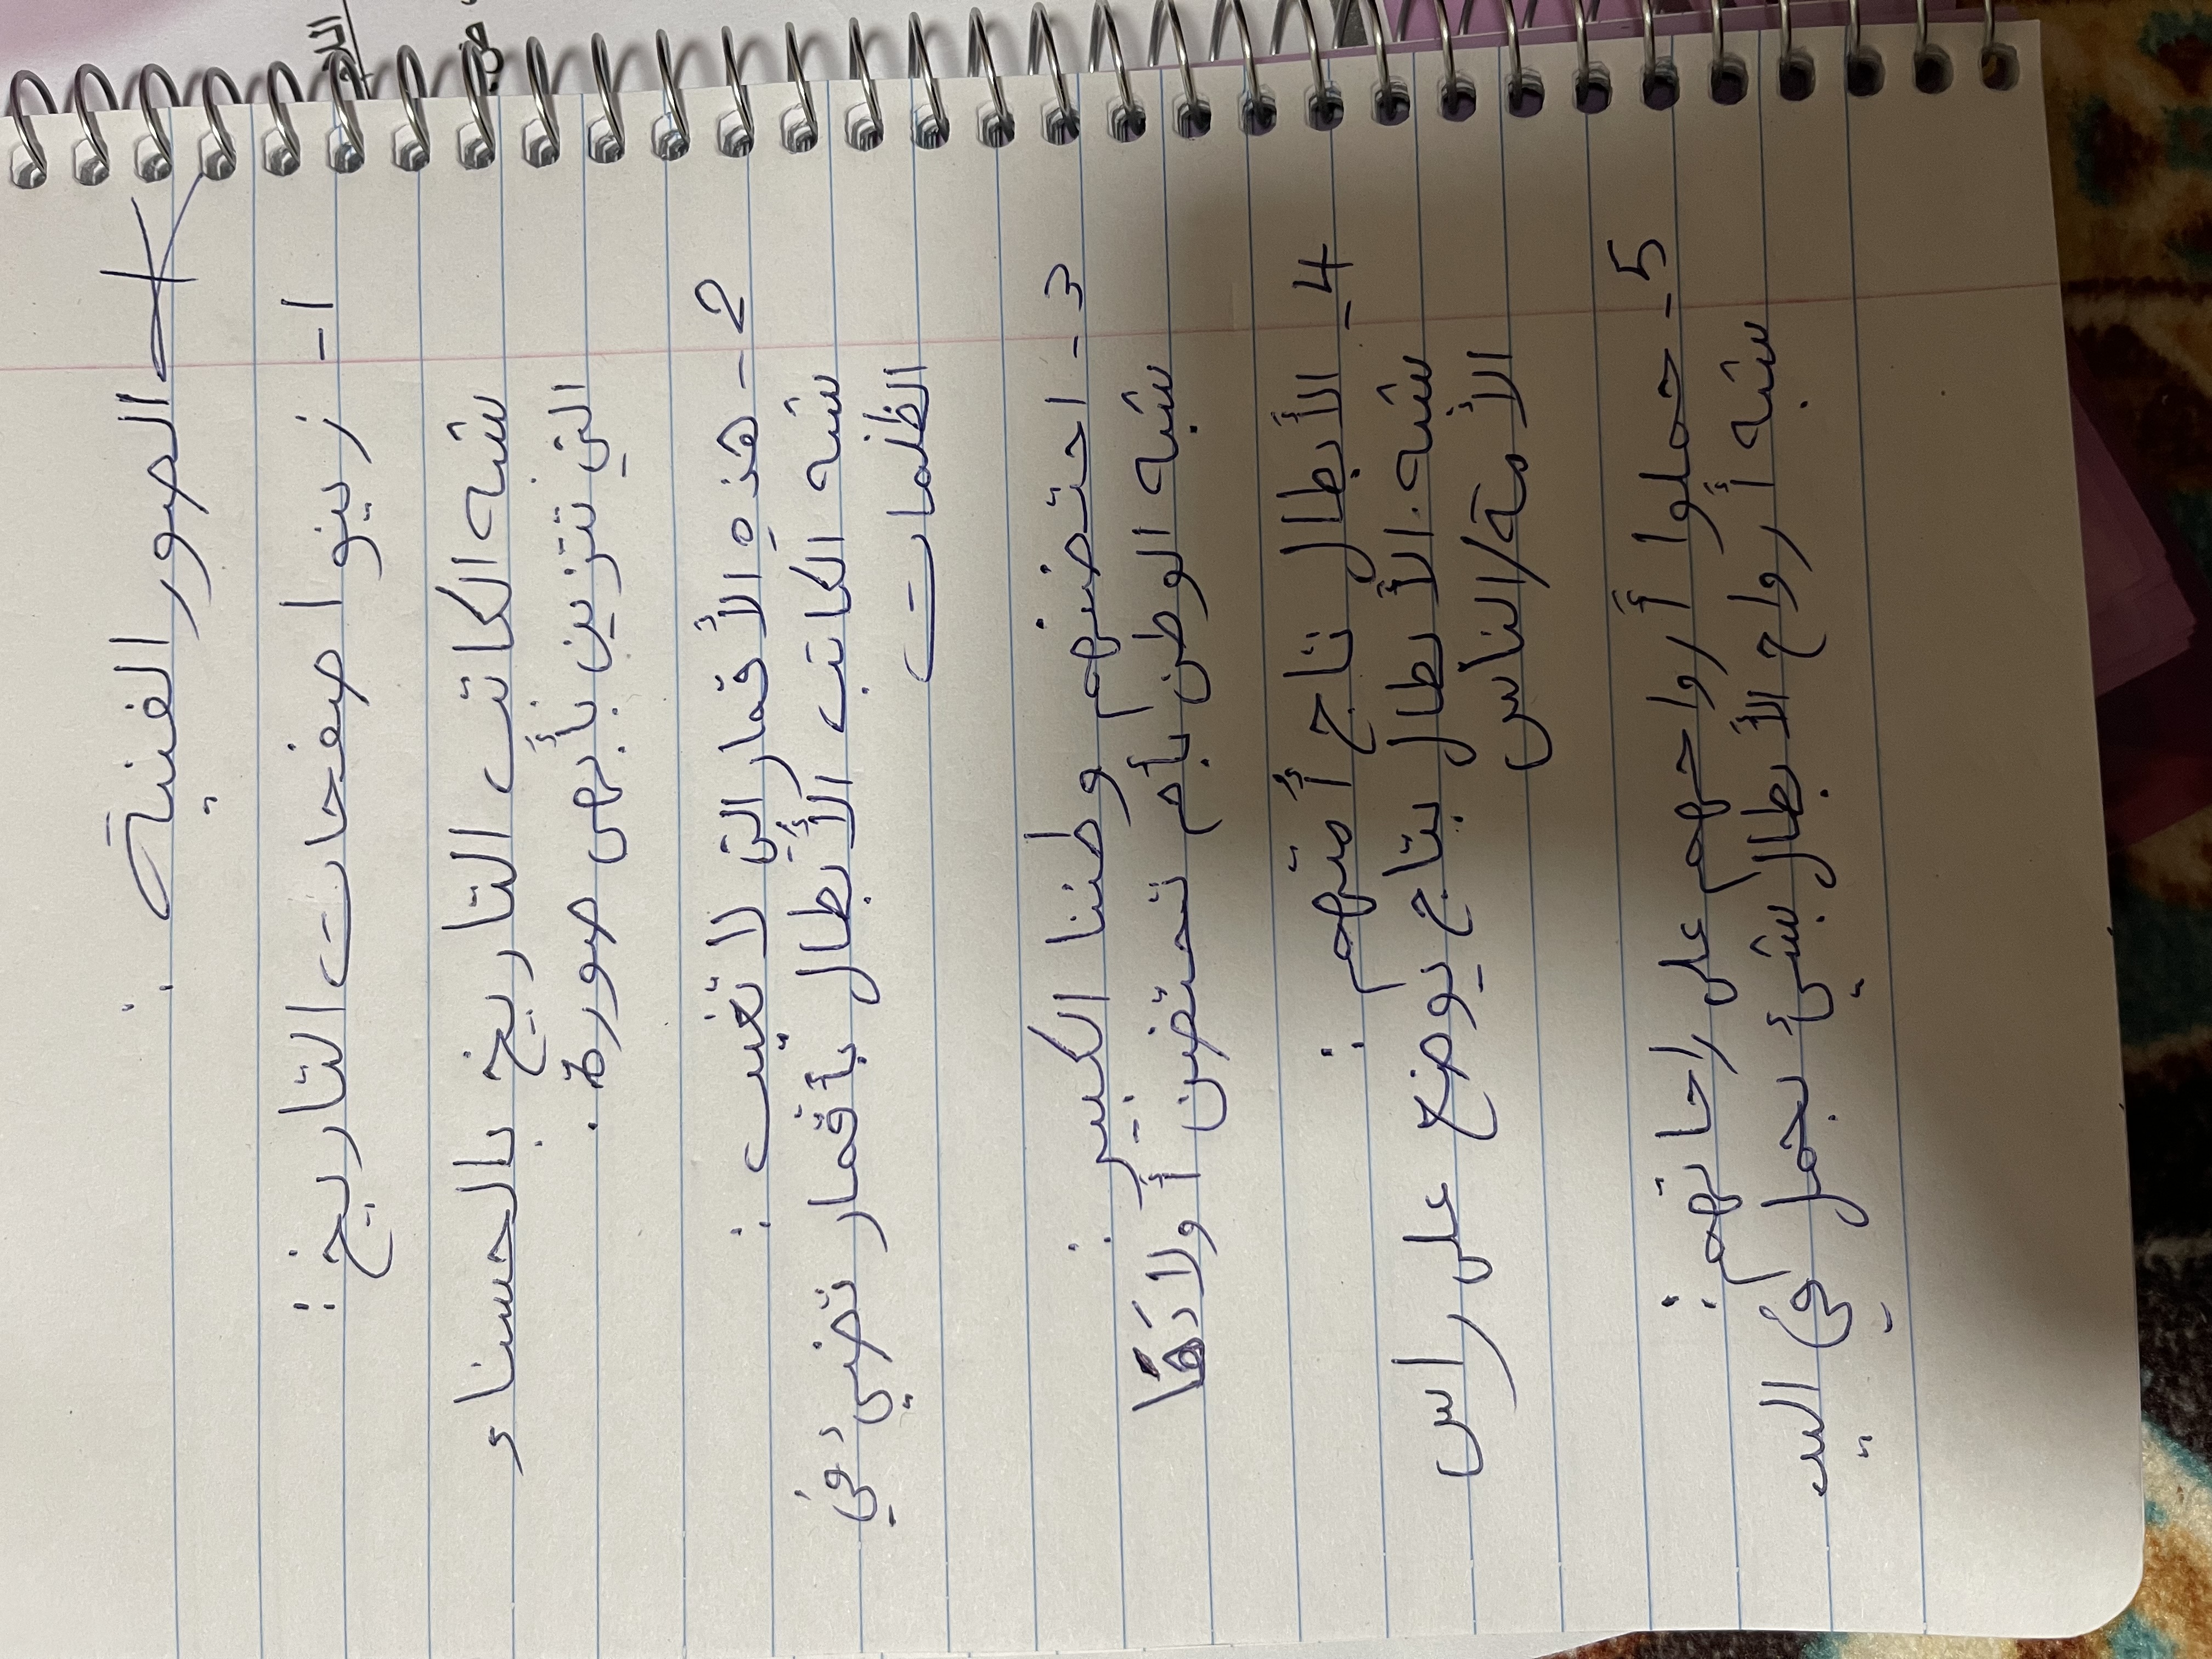 * الصور الفنية :
1- زينوا صفحات التاريخ :
شبه الكاتب التاريخ بالحسناء
التي تتزين بأبهى صورة.
2- هذه الأقمار التي لا تغيب :
شبه الكاتب الأبطال بأقمار تضيء في
الظلمات
3- احتضنهم وطننا الكبير :
شبه الوطن بأم تحتضن أولادها
4- الأبطال تاج أمتهم :
شبه الأبطال بتاج يوضع على راس
الأمة/الناس
5- حملوا أرواحهم على راحاتهم :
شبه أرواح الأبطال بشيئ يحمل في اليد